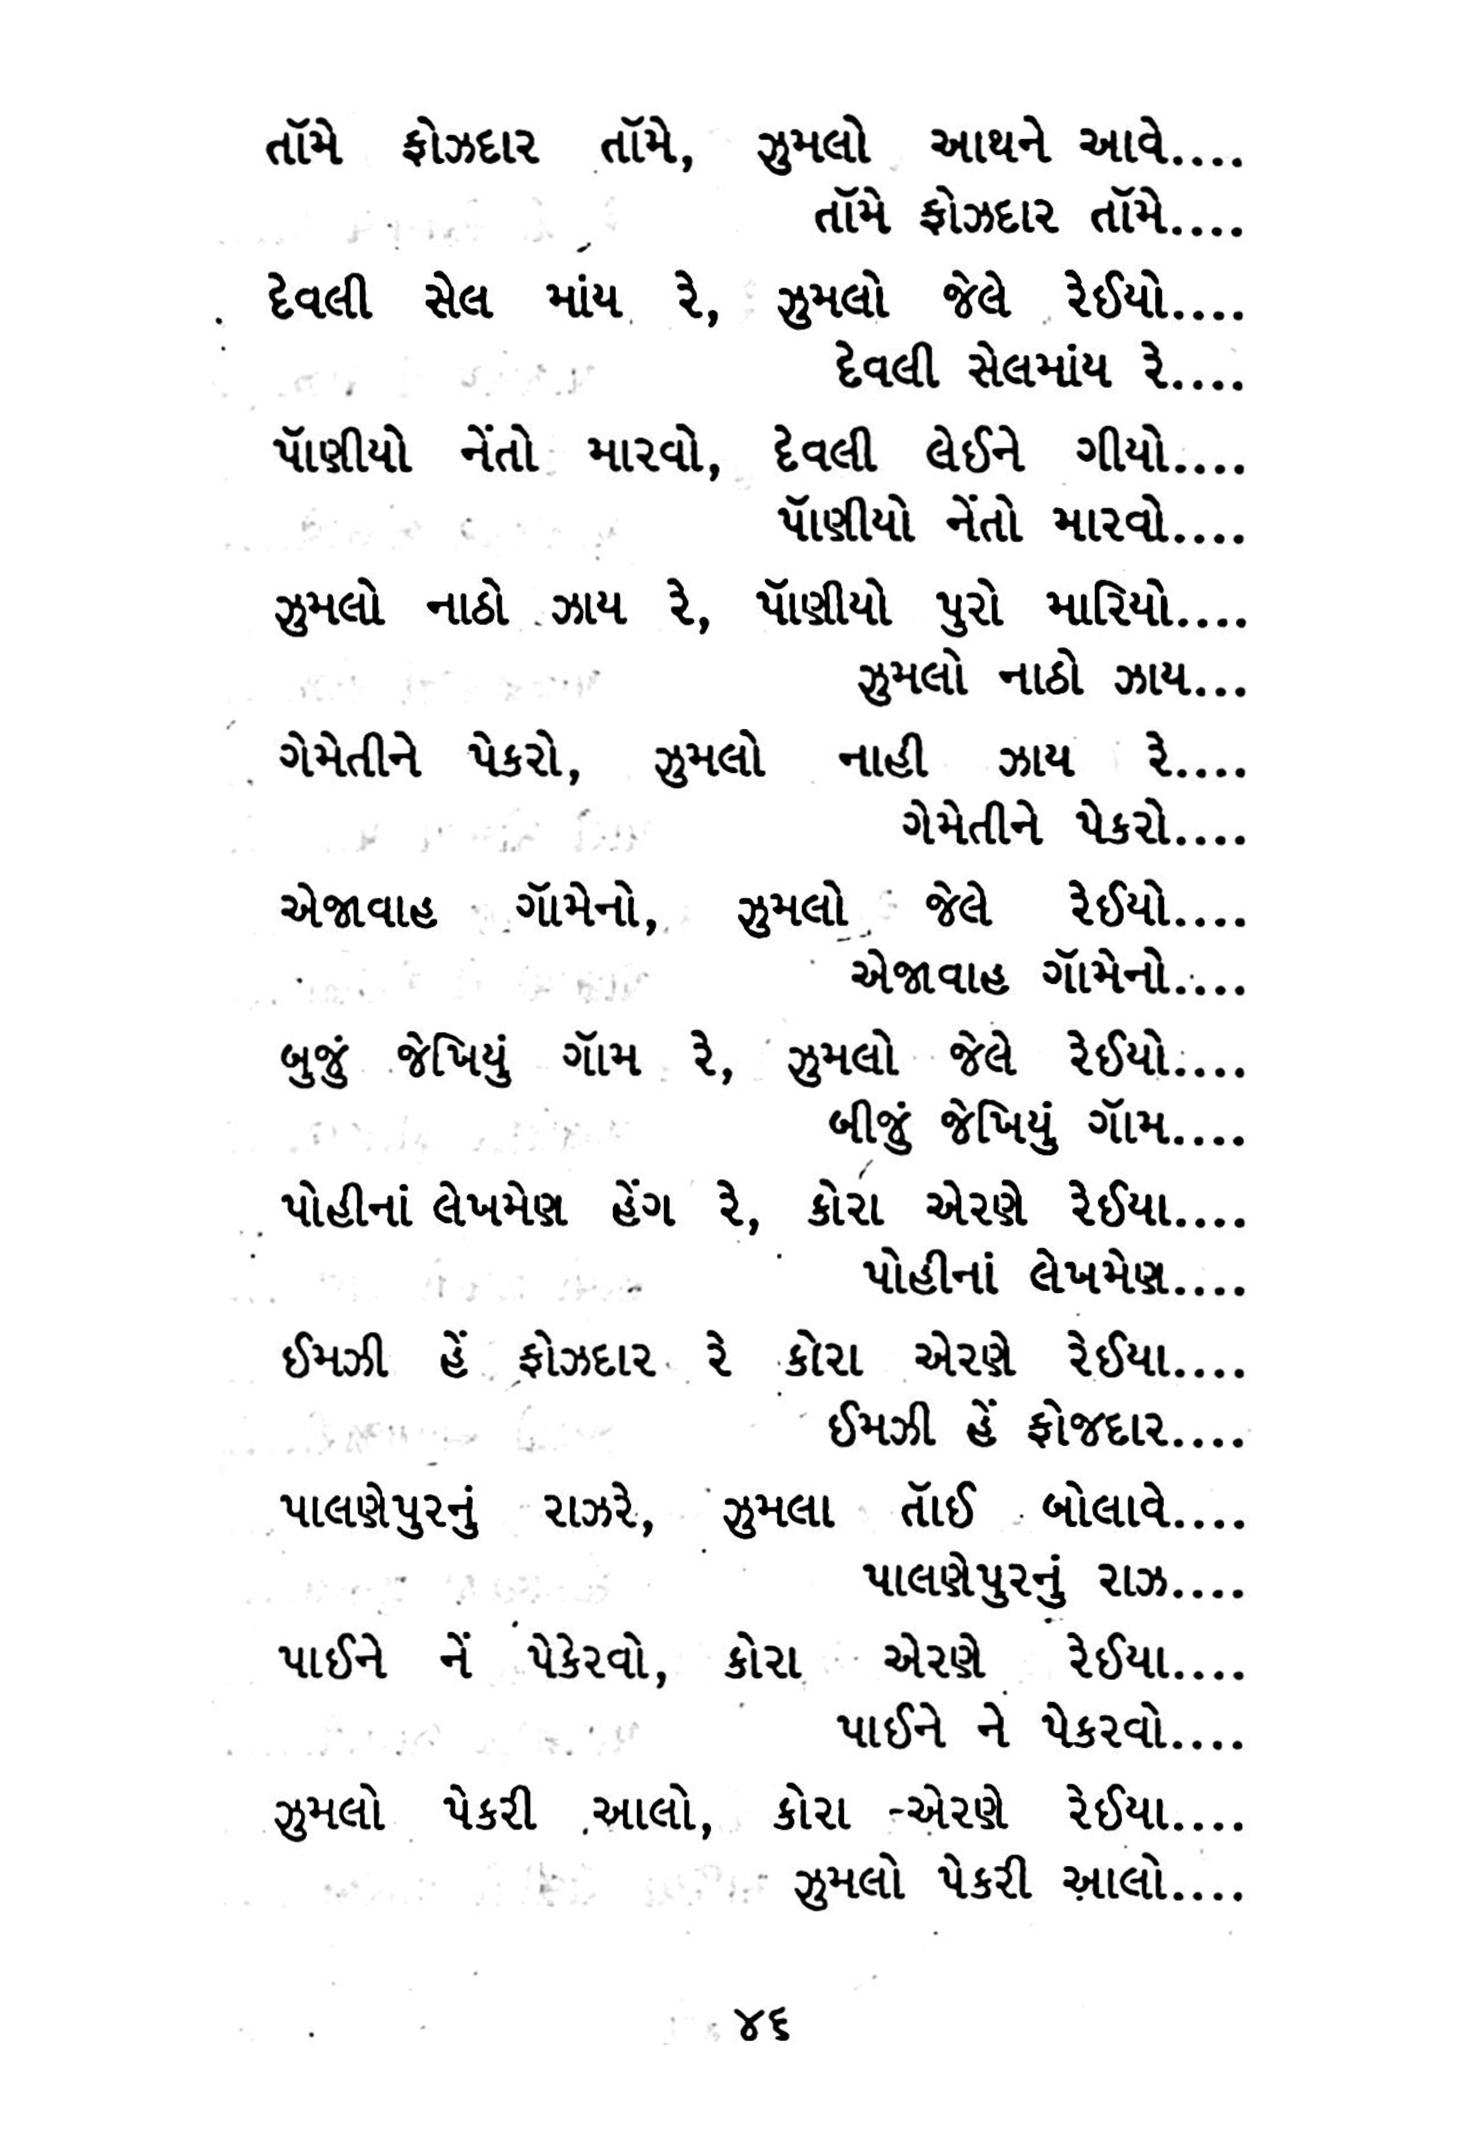 તૉમે ફોઝદાર તૉમે, ઝુમલો આથને આવે....
તૉમે ફોઝદાર તૉમે....
દેવલી સેલ માંય રે, ઝુમલો જેલે રેઈયો....
દેવલી સેલમાંય રે....
પૅાણીયો નેંતો મારવો, દેવલી લેઈને ગીયો....
પૅાણીયો નેંતો મારવો....
ઝુમલો નાઠો ઝાય રે, પૅાણીયો પુરો મારિયો....
ઝુમલો નાઠો ઝાય...
ગેમેતીને પેકરો, ઝુમલો નાહી ઝાય રે....
ગેમેતીને પેકરો....
એજાવાહ ગૅામેનો, ઝુમલો જેલે રેઈયો....
એજાવાહ ગૅામેનો....
બુજું જેખિયું ગૅામ રે, ઝુમલો જેલે રેઈયો....
બીજું જેખિયું ગૅામ....
પોહીનાં લેખમેણ હેંગ રે, કોરા એરણે રેઈયા....
પોહીનાં લેખમેણ....
ઈમઝી હેં ફોઝદાર રે કોરા એરણે રેઈયા....
ઈમઝી હેં ફોજદાર....
પાલણેપુરનું રાઝરે, ઝુમલા તૅાઈ બોલાવે....
પાલણેપુરનું રાઝ....
પાઈને નેં પેકેરવો, કોરા એરણે રેઈયા....
પાઈને ને પેકરવો....
ઝુમલો પેકરી આલો, કોરા એરણે રેઈયા....
ઝુમલો પેકરી આલો....
૪૬